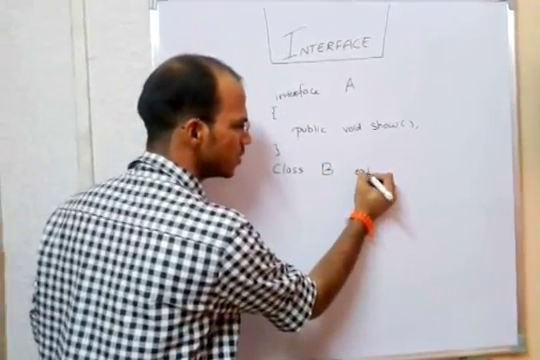 INTERFACE
interface A
{
public void show();
}
Class B